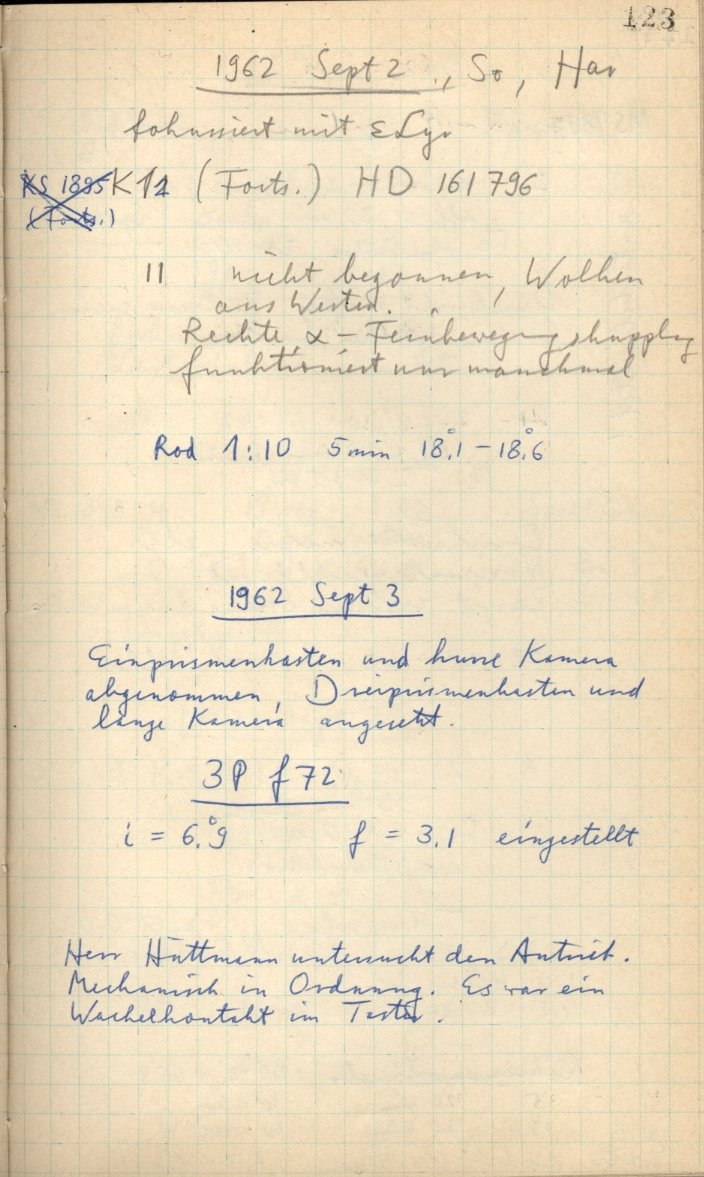 123
1962 Sept 2., So, Har
fokussiert mit ε Lyr
KS 1895 K 12 (Forts.) HD 161 796
(Forts.)
11 nicht begonnen, Wolken
aus Westen.
Rechte α - Feinbewegungskupplung
funktioniert nur manchmal
Rod 1:10 5 min 18°.1 - 18°.6
1962 Sept 3
Einprismenkasten und kurze Kamera
abgenommen, Dreiprismenkasten und
lange Kamera angesetzt.
3P f 72
i = 6°.9 f = 3.1 eingestellt
Herr Hüttmann untersucht den Antrieb.
Mechanisch in Ordnung. Es war ein
Wackelkontakt im Taster.